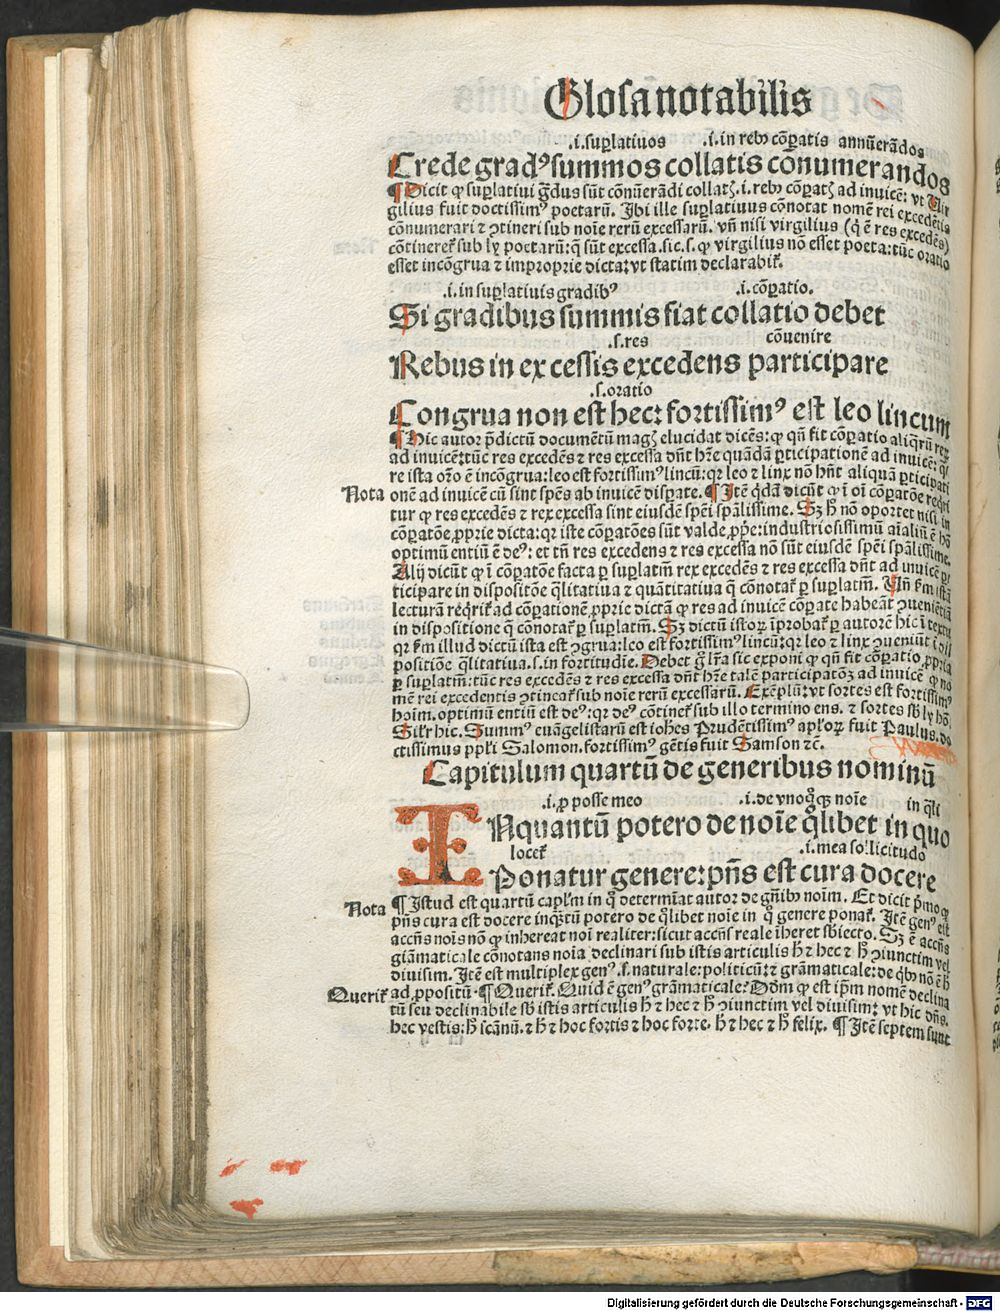 Glosa notabilis
.i. suꝑlatiuos .i. in reb9 cōꝑatis annūerādos
Crede gradꝰ summos collatis conumerandos
¶ Dicit ꝙ suꝑlatiui g̃dus sūt cōnūerādi collatꝭ .i. reb9 cōꝑatꝭ ad inuicē: vt Uir
gilius fuit doctissimꝰ poetarū. Ibi ille suꝑlatiuus cōnotat nomē rei excedētis
cōnumerari ⁊ ꝯtineri sub noīe rerū excessarū. vn̄ nisi virgilius (q̇ ē res excedēs)
cōtineret᷑ sub ly poetarū: q̄ sūt excessa. sic .s. ꝙ virgilius nō esset poeta: tūc oratio
esset incōgrua ⁊ improprie dicta: vt statim declarabit᷑.
.i. in suꝑlatiuis gradibꝰ .i. cōꝑatio.
Si gradibus summis fiat collatio debet
.s. res cōuenire
Rebus in excessis excedens participare
.s. oratio
Congrua non est hec: fortissimꝰ est leo lincum
¶ Hic autor p̄dictū documētū magꝭ elucidat dicēs: ꝙ qn̄ fit cōꝑatio aliq̄rū rerū
ad inuicē: tūc res excedēs ⁊ res excessa dn̄t hr̄e quādā ꝑticipationē ad inuicē: qr̄
re ista or̄o ē incōgrua: leo est fortissimꝰ lincū: qr leo ⁊ linx nō hn̄t aliquā ꝑticipati
Nota onē ad inuicē cū sint spēs ab inuicē disꝑate. ¶ Itē q̇dā dicūt ꝙ ī oī cōꝑatōe reqri
tur ꝙ res excedēs ⁊ res excessa sint eiusdē spēi spālissime. Sꝫ h̄ nō oportet nisi in
cōꝑatōe ꝓprie dicta: qr iste cōꝑatōes sūt valde ꝓpe: industriosissimū aīaliū ē hō
optimū entiū ē deꝰ: et tn̄ res excedens ⁊ res excessa nō sūt eiusdē spēi spālissime.
Alij dicūt ꝙ ī cōꝑatōe facta ꝑ suꝑlatm̄ res excedēs ⁊ res excessa dn̄t ad inuicē ꝑ
ticipare in dispositōe q̄litatiua ⁊ quātitatiua q̄ cōnotat᷑ ꝑ suꝑlatm̄. Un̄ ẜm istā
lecturā reqrit᷑ ad cōꝑationē ꝓprie dictā ꝙ res ad inuicē cōꝑate habeāt ꝯueniētiā
in dispositione q̄ cōnotat᷑ ꝑ suꝑlatm̄. Sꝫ dictū istoꝝ īprobat᷑ ꝑ autorē hic ī textu
qr ẜm illud dictū ista est ꝯgrua: leo est fortissimꝰ lincū: qr leo ⁊ linx ꝯueniūt ī dis
positiōe q̄litatiua .s. in fortitudīe. Debet g̊ lr̄a sic exponi ꝙ qn̄ fit cōꝑatio ꝓpria
ꝑ suꝑlatm̄: tūc res excedēs ⁊ res excessa dn̄t hr̄e talē participatōꝫ ad inuicē ꝙ no
mē rei excedentis ꝯtineat᷑ sub noīe rerū excessarū. Exēplū: vt sortes est fortissimꝰ
hoīm. optimū entiū est deꝰ: qr deꝰ cōtinet᷑ sub illo termino ens. ⁊ sortes sb̄ ly hō.
Silr̄ hic. Summꝰ euāgelistarū est ioh̄es Prudētissimꝰ apl̄oꝝ fuit Paulus. do
ctissimus ppl̄i Salomon. fortissimꝰ gētis fuit Samson ⁊c̄.
Capitulum quartū de generibus nominū
.i. ꝓ posse meo .i. de vnoq̊qꝫ noīe in q̄li
INquantū potero de noīe q̊libet in quo
locet᷑ .i. mea sollicitudo
Ponatur genere: pn̄s est cura docere
Nota ¶ Istud est quartū capl̄m in q̊ determīat autor de gn̄ibꝰ noīm. Et dicit p̄mo ꝙ
pn̄s cura est docere inq̄tū potero de q̊libet noīe in q̊ genere ponat᷑. Itē genꝰ est
accn̄s noīs nō ꝙ inhereat noī realiter: sicut accn̄s reale īheret sb̄iecto. Sꝫ ē accn̄s
grāmaticale cōnotans noīa declinari sub istis articulis h̄ ⁊ hec ⁊ h̄ ꝯiunctim vel
diuisim. Itē est multiplex genꝰ .s. naturale: politicū: ⁊ grāmaticale: de qb9 nō ē h̄
Querit᷑ ad ꝓpositū. ¶ Querit᷑. Quid ē genꝰ grāmaticale? Dōm ꝙ est ip̄m nomē declina
tū seu declinabile sb̄ istis articulis h̄ ⁊ hec ⁊ h̄ ꝯiunctim vel diuisim: vt hic dn̄s.
hec vestis: h̄ scānū. ⁊ h̄ ⁊ hoc fortis ⁊ hoc forte. h̄ ⁊ hec ⁊ h̄ felix. ¶ Itē septem sunt
Digitalisierung gefördert durch die Deutsche Forschungsgemeinschaft - DFG